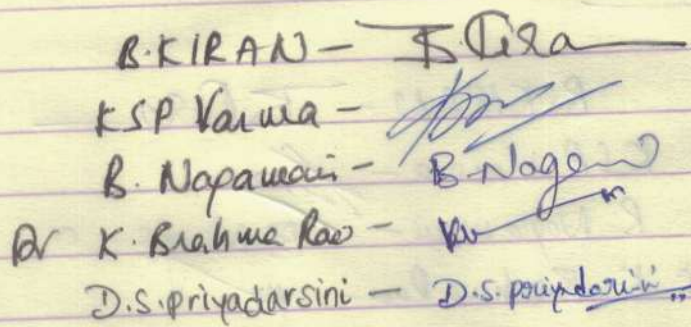 B.KIRAN - B.Kira
KSP Varma -
B. Nagamani - B.Nagam
Dr K. Brahma Rao -
D.S.priyadarsini - D.S.priyadarsini